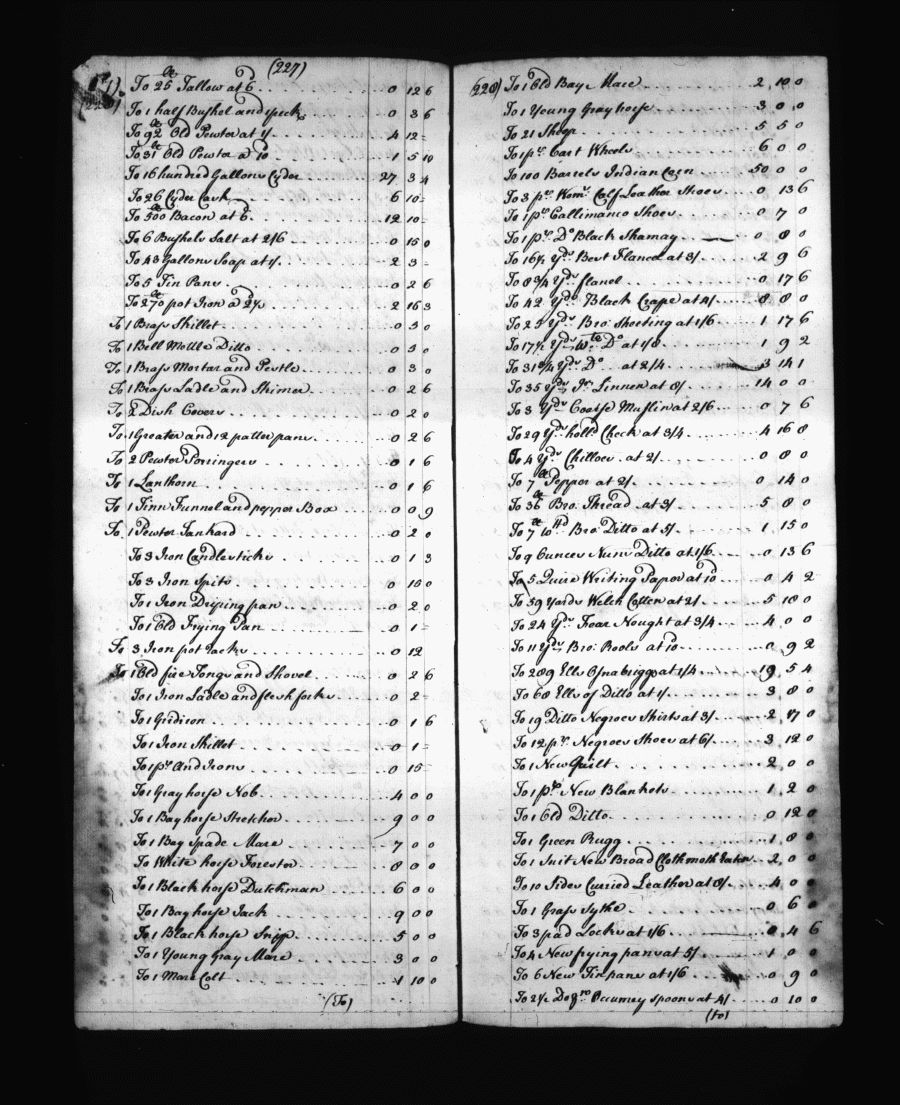 (227)
To 25 lb Tallow at 6d . . 0 12 6
To 1 half Bushel and peck 0 3 6
To 92 lb Old Pewter at 1/ . . 4 12 -
To 31 lb Old Pewter a 10d . . 1 5 10
To 16 hundred Gallons Cyder . . 27 3 4
To 26 Cyder Cask . . 6 10 -
To 500 lb Bacon at 6d . . 12 10 -
To 6 Bushels Salt at 2/6 . . 0 15 0
To 43 Gallons Soap at 1/. . . 2 3 -
To 5 Tin Pans . . 0 2 6
To 270 lb pot Iron a 2½ . . 2 16 3
To 1 Brass Skillet . . 0 5 0
To 1 Bell Mettle Ditto . . 0 5 0
To 1 Brass Mortar and Pestle . . 0 3 0
To 1 Brass Ladle and Skimer . . 0 2 6
To 2 Dish Covers . . 0 2 0
To 1 Greater and 12 patter pans . . 0 2 6
To 2 Pewter Porringers . . 0 1 6
To 1 Lanthorn . . 0 1 6
To 1 Tinn Funnel and pepper Box . . 0 0 9
To 1 Pewter Tankard . . 0 2 0
To 3 Iron Candlesticks . . 0 1 3
To 3 Iron Spits . . 0 15 0
To 1 Iron Driping pan . . 0 2 0
To 1 Old Frying Pan . . 0 1 -
To 3 Iron pot Jacks . . 0 12
To 1 Old fire Tongs and Shovel . . 0 2 6
To 1 Iron Ladle and flesh forks . . 0 2 -
To 1 Gridiron . . 0 1 6
To 1 Iron Skillet . . 0 1 -
To 1 pr And Irons . . 0 15 -
To 1 Gray horse Nob . . 4 0 0
To 1 Bay horse Stretcher . . 9 0 0
To 1 Bay Spade Mare . . 7 0 0
To White horse Forestor . . 8 0 0
To 1 Black horse Dutchman . . 6 0 0
To 1 Bay horse Jack . . 9 0 0
To 1 Black horse Snip . . 5 0 0
To 1 Young Gray Mare . . 3 0 0
To 1 Mare Colt . . 1 10 0
(To)
(228) To 1 Old Baye Mare . . 2 10 0
To 1 Young Gray horse . . 3 0 0
To 21 Sheep . . 5 5 0
To 1 pr Cart Wheels . . 6 0 0
To 100 Barrels Indian Corn . . 50 0 0
To 3 pr Woms Calf Leather Shoes . . 0 13 6
To 1 pr Callimanco Shoes . . 0 7 0
To 1 pr Do Black Shamay . . 0 8 0
To 16½ Yds Best Flanel at 3/ . . 2 9 6
To 8¾ Yds flanel . . 0 17 6
To 42 Yds Black Crape at 4/ . . 8 8 0
To 25 Yds Bro: Sheeting at 1/6 . . 1 17 6
To 17½ Yds Wte Do at 1/8 . . 1 9 2
To 31¾ Yds Do . . at 2/4 . . 3 14 1
To 35 Yds Ir Linnen at 8/ . . 14 0 0
To 3 Yds Coarse Muslin at 2/6 . . 0 7 6
To 29 Yds holld Check at 3/4 . . 4 16 8
To 4 Yds Chilloes . at 2/ . . 0 8 0
To 7 lb Pepper at 2/ . . 0 14 0
To 36 lb Bro: Thread at 3/ . . 5 8 0
To 7 lb Wtd Bro Ditto at 5/ . . 1 15 0
To 9 Ounces Nuns Ditto at 1/6 . . 0 13 6
To 5 Quire Writing Paper at 10d . . 0 4 2
To 59 Yards Welch Cotten at 2/ . . 5 18 0
To 24 Yds Fear Nought at 3/4 . . 4 0 0
To 11 Yds Bro: Rools at 10d . . 0 9 2
To 289 Ells Osnabriggs at 1/4 . . 19 5 4
To 68 Ells of Ditto at 1/. . . 3 8 0
To 19 Ditto Negroes Shirts at 3/ . . 2 17 0
To 12 pr Negroes Shoes at 6/. . . 3 12 0
To 1 New Quilt . . 2 0 0
To 1 pr New Blankets . . 1 2 0
To 1 Old Ditto . . 0 12 0
To 1 Green Rugg . . 1 8 0
To 1 Suit New Broad Cloth moth Eaten . . 2 0 0
To 10 Sides Curried Leather at 8/. . . 4 0 0
To 1 Grass Sythe . . 0 6 0
To 3 pad Locks at 1/6 . . 0 4 6
To 4 New frying pans at 5/ . . 1 0 0
To 6 New Tin pans at 1/6 . . 0 9 0
To 2½ Dozn Occumey Spoons at 4/ . . 0 10 0
(to)